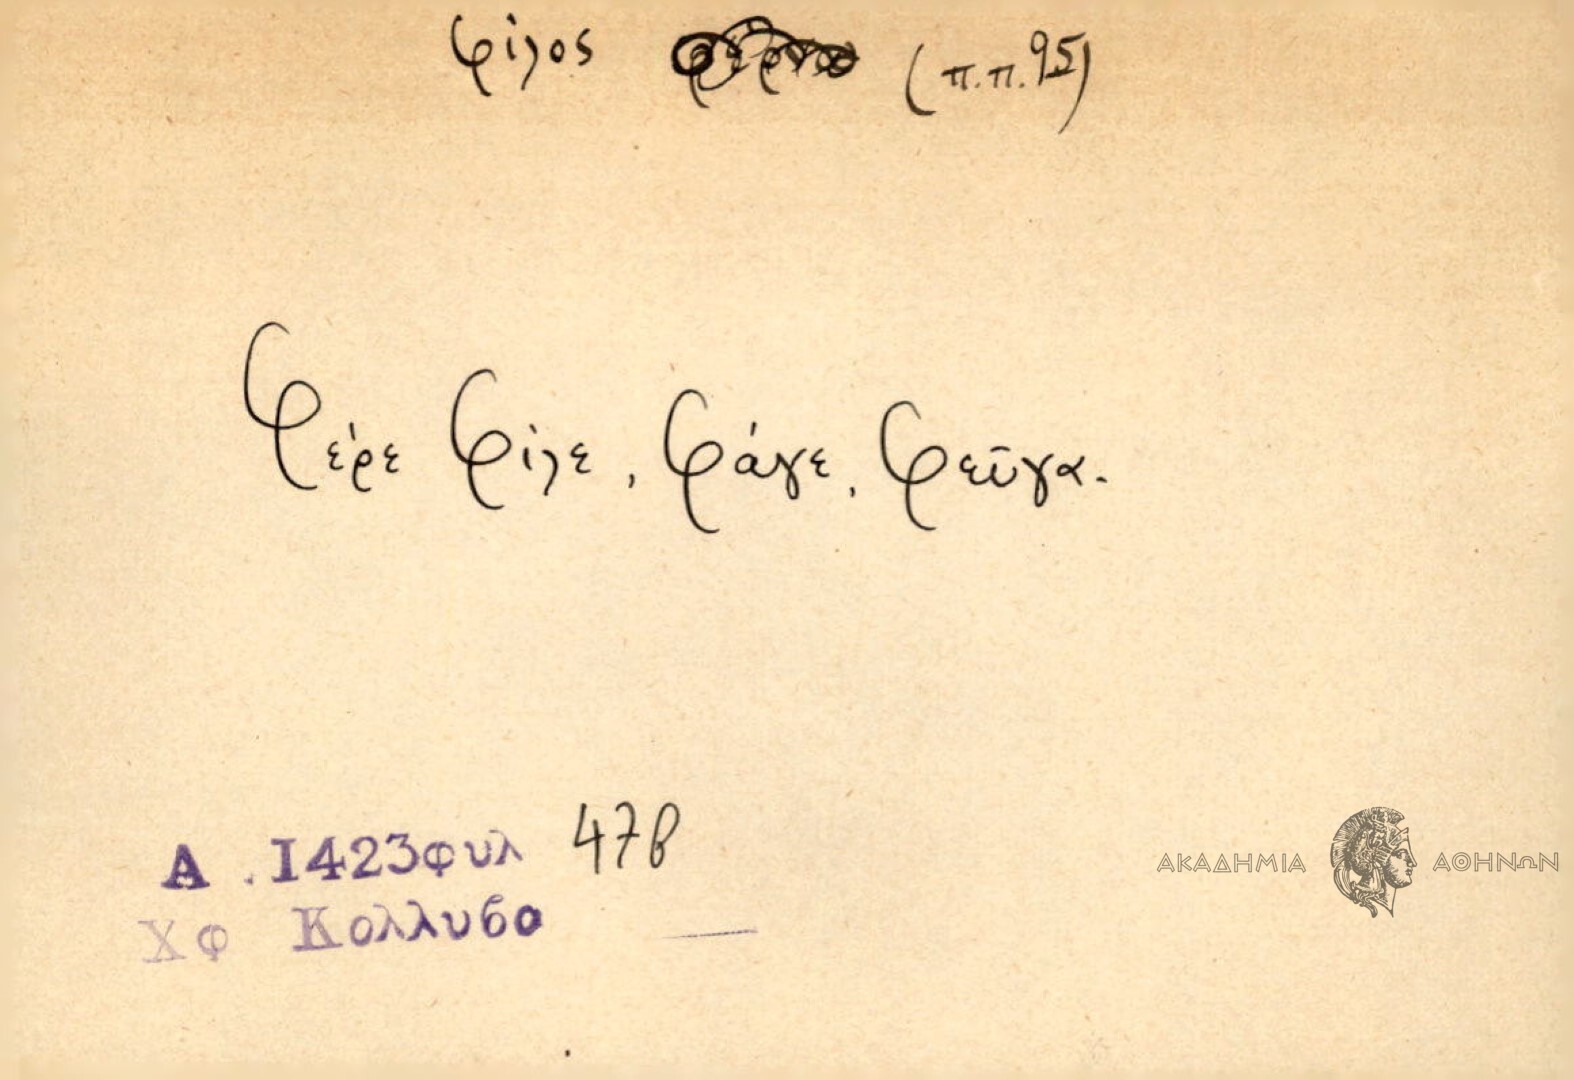 φίλος (π.π. 95)
Φέρε Φίλε, Φάγε, Φεῦγα.
Α. 1423φυλ 47β
Χφ Κολλυβα
ΑΚΑΔΗΜΙΑ ΑΘΗΝΩΝ